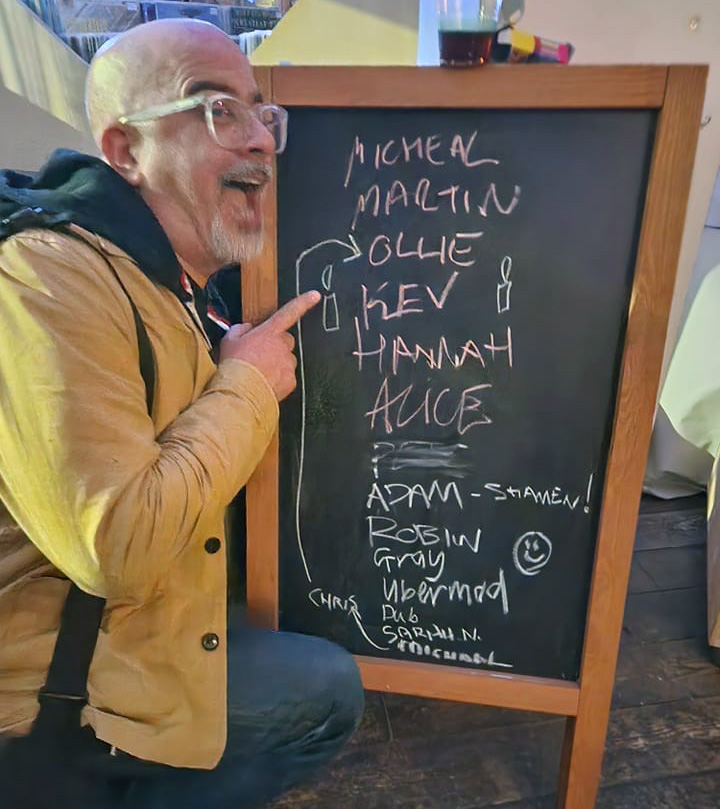 MICHEAL
MARTIN
OLLIE
KEV
HANNAH
ALICE
ADAM - SHAMEN!
ROBIN
Gray
Ubermod
CHRIS
Dub
SARAH N.
MICHAEL